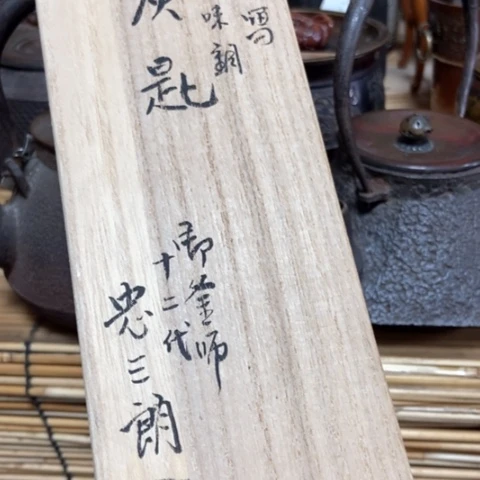 寫
味銅
灰匙
御釜師
十二代
忠三朗